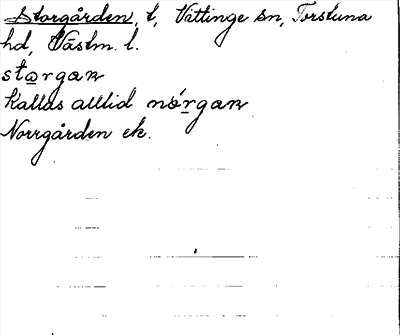 Storgården, t, Vittinge sn, Torstuna
hd, Västm. l.
sta̱rgaɴ
Kallas alltid nó̱rgaɴ
Norrgården ek.